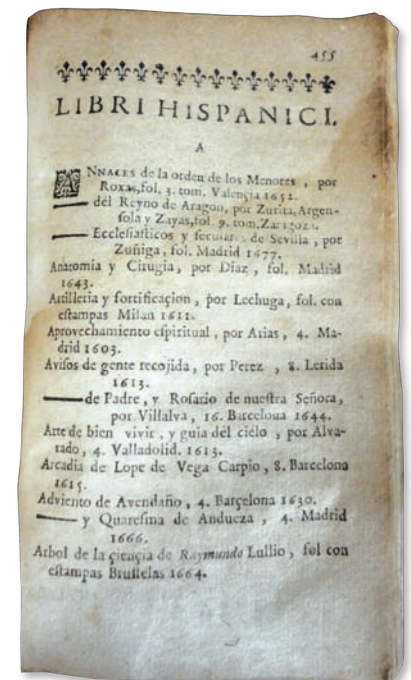 455
LIBRI HISPANICI.
A
ANNALES de la orden de los Menores, por
Roxas, fol. 3. tom. Valençia 1652.
—— del Reyno de Aragon, por Zurita, Argen-
sola y Zayas, fol. 9. tom. Zaragoza.
—— Ecclesiasticos y seculares de Sevilla, por
Zuñiga, fol. Madrid 1677.
Anatomia y Cirugia, por Diaz, fol. Madrid
1643.
Artilleria y fortificaçion, por Lechuga, fol. con
estampas Milan 1611.
Aprovechamiento espiritual, por Arias, 4. Ma-
drid 1603.
Avisos de gente recojida, por Perez, 8. Lerida
1613.
—— de Padre, y Rosario de nuestra Señora,
por Villalva, 16. Barcelona 1644.
Arte de bien vivir, y guia del çielo, por Alva-
rado, 4. Valladolid. 1613.
Arcadia de Lope de Vega Carpio, 8. Barcelona
1615.
Adviento de Avendaño, 4. Barçelona 1630.
—— y Quaresma de Andueza, 4. Madrid
1666.
Arbol de la çiençia de Raymundo Lullio, fol con
estampas Brusselas 1664.